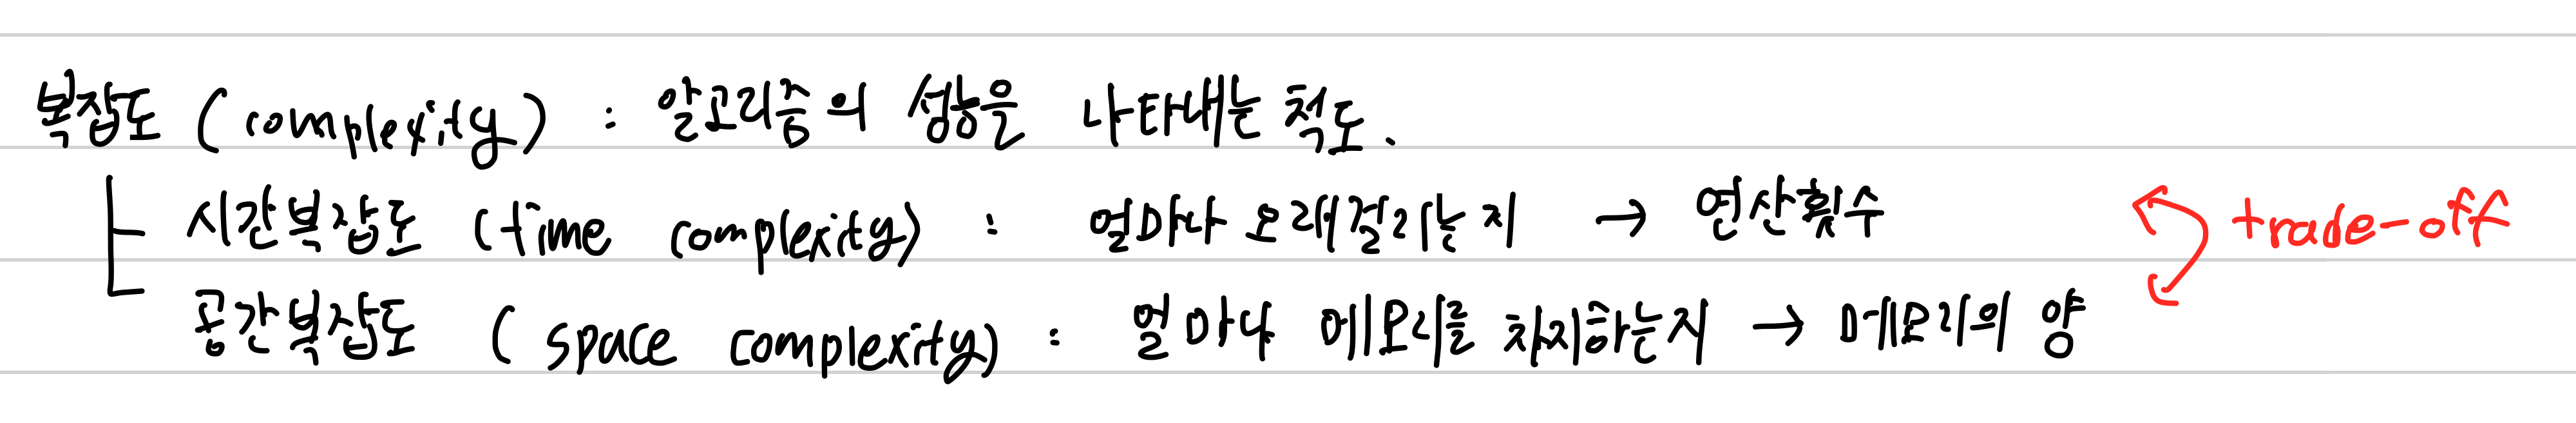 복잡도 (complexity) : 알고리즘의 성능을 나타내는 척도.
시간복잡도 (time complexity) : 얼마나 오래걸리는지 → 연산횟수
trade-off
공간복잡도 (space complexity) : 얼마나 메모리를 차지하는지 → 메모리의 양